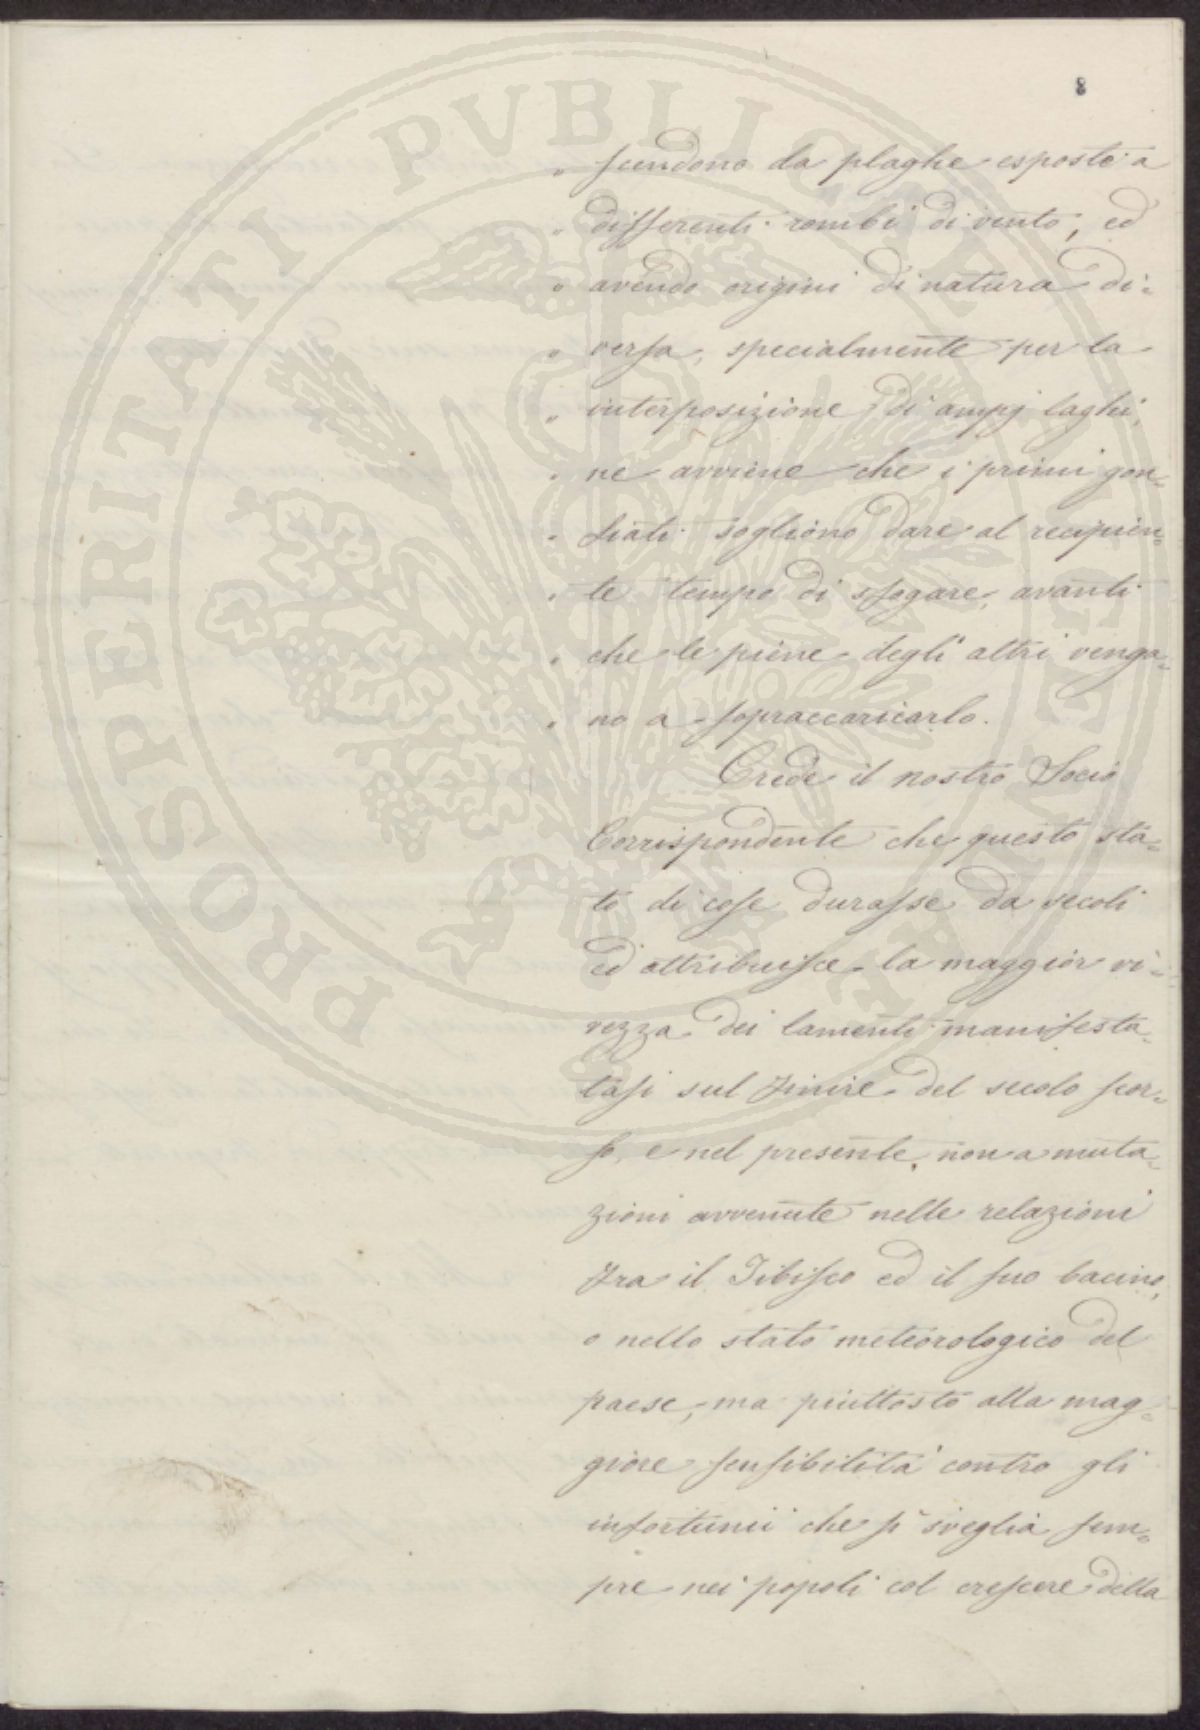 8
PROSPERITATI PVBLICAE AVGENDAE
„ scendono da plaghe esposte a
„ differenti rombi di vento, ed
„ avendo origini di natura di=
„ versa, specialmente per la
„ interposizione di ampj laghi,
„ ne avviene che i primi gon=
„ fiati sogliono dare al recipien=
„ te tempo di sfogare, avanti
„ che le piene degli altri venga=
„ no a sopraccaricarlo.
Crede il nostro Socio
Corrispondente che questo sta=
to di cose durasse da secoli
ed attribuisce la maggior vi=
vezza dei lamenti manifesta=
tasi sul finire del secolo scor=
so, e nel presente, non a muta=
zioni avvenute nelle relazioni
fra il Tibisco ed il suo bacino,
o nello stato meteorologico del
paese, ma piuttosto alla mag=
giore sensibilità contro gli
infortunii che si sveglia sem=
pre nei popoli col crescere della